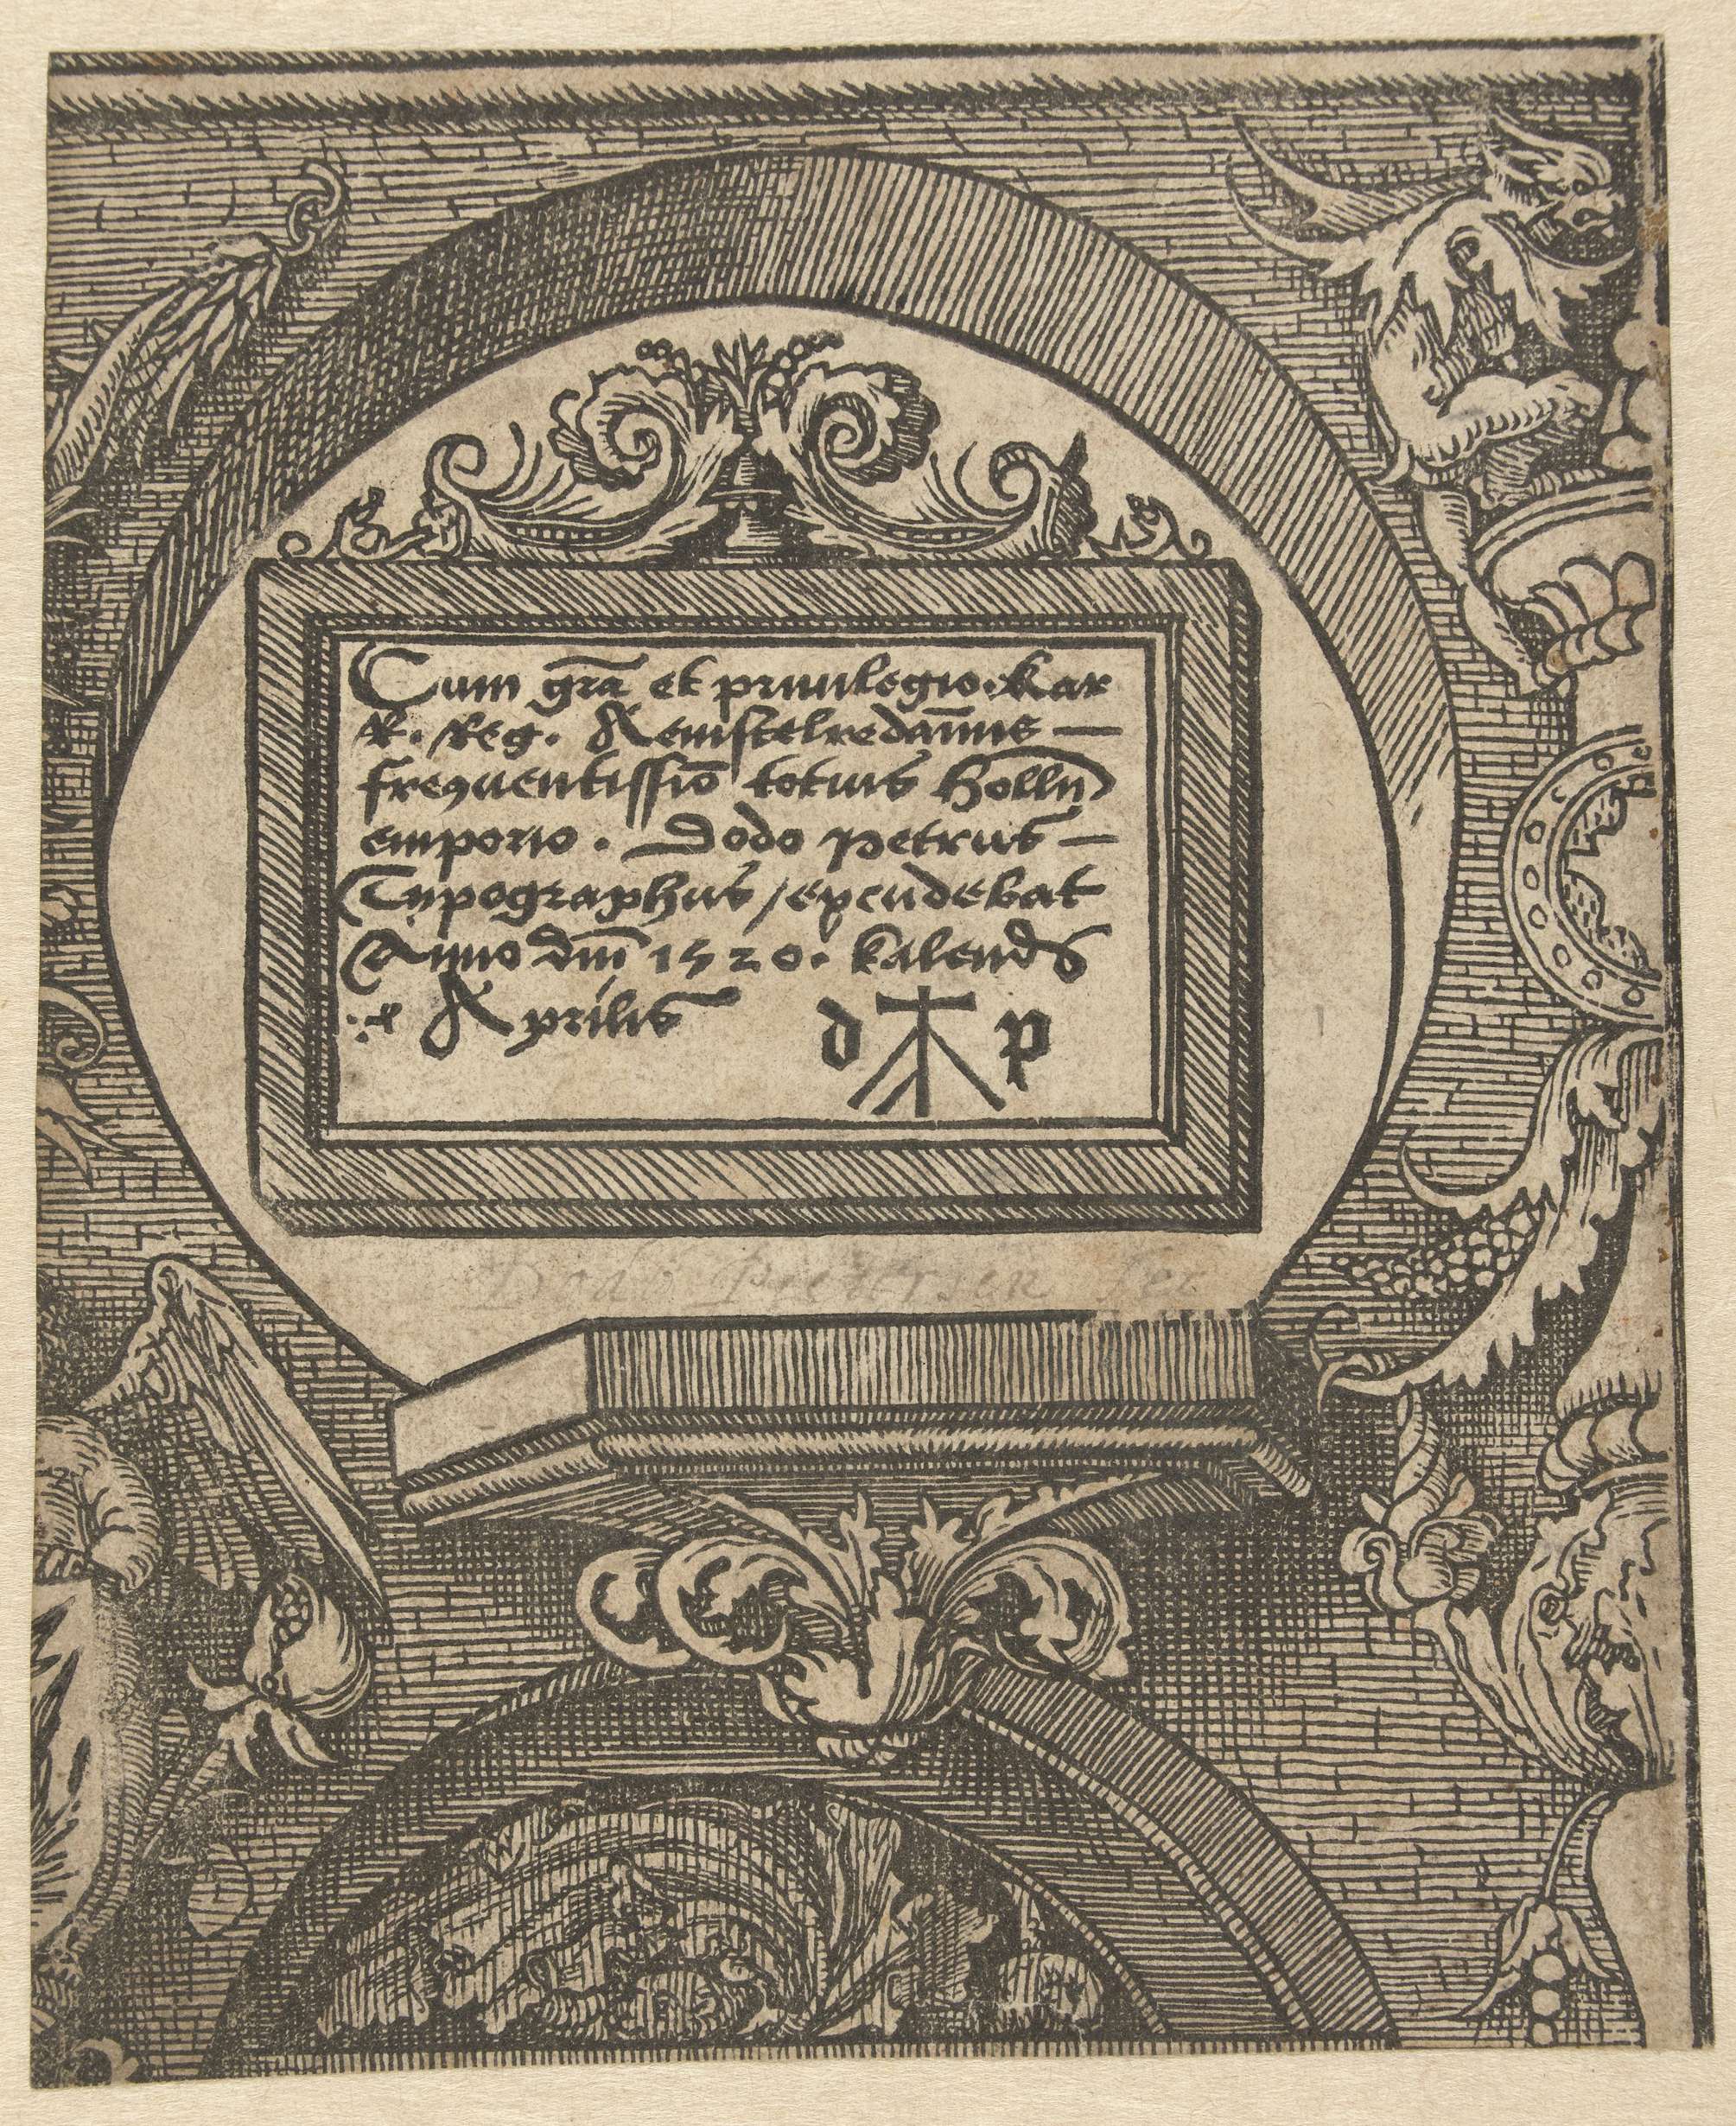 Cum grā et priuilegio. Kar
R. Reg. Aemstelredāmus —
frequentissīo totius Hollīj
emporio. Dodo Petrus —
Typographus / excudebat
Anno dnī 1520. kalend̄s
:· Aprilis
d p
Dodo Pietersen fec
W